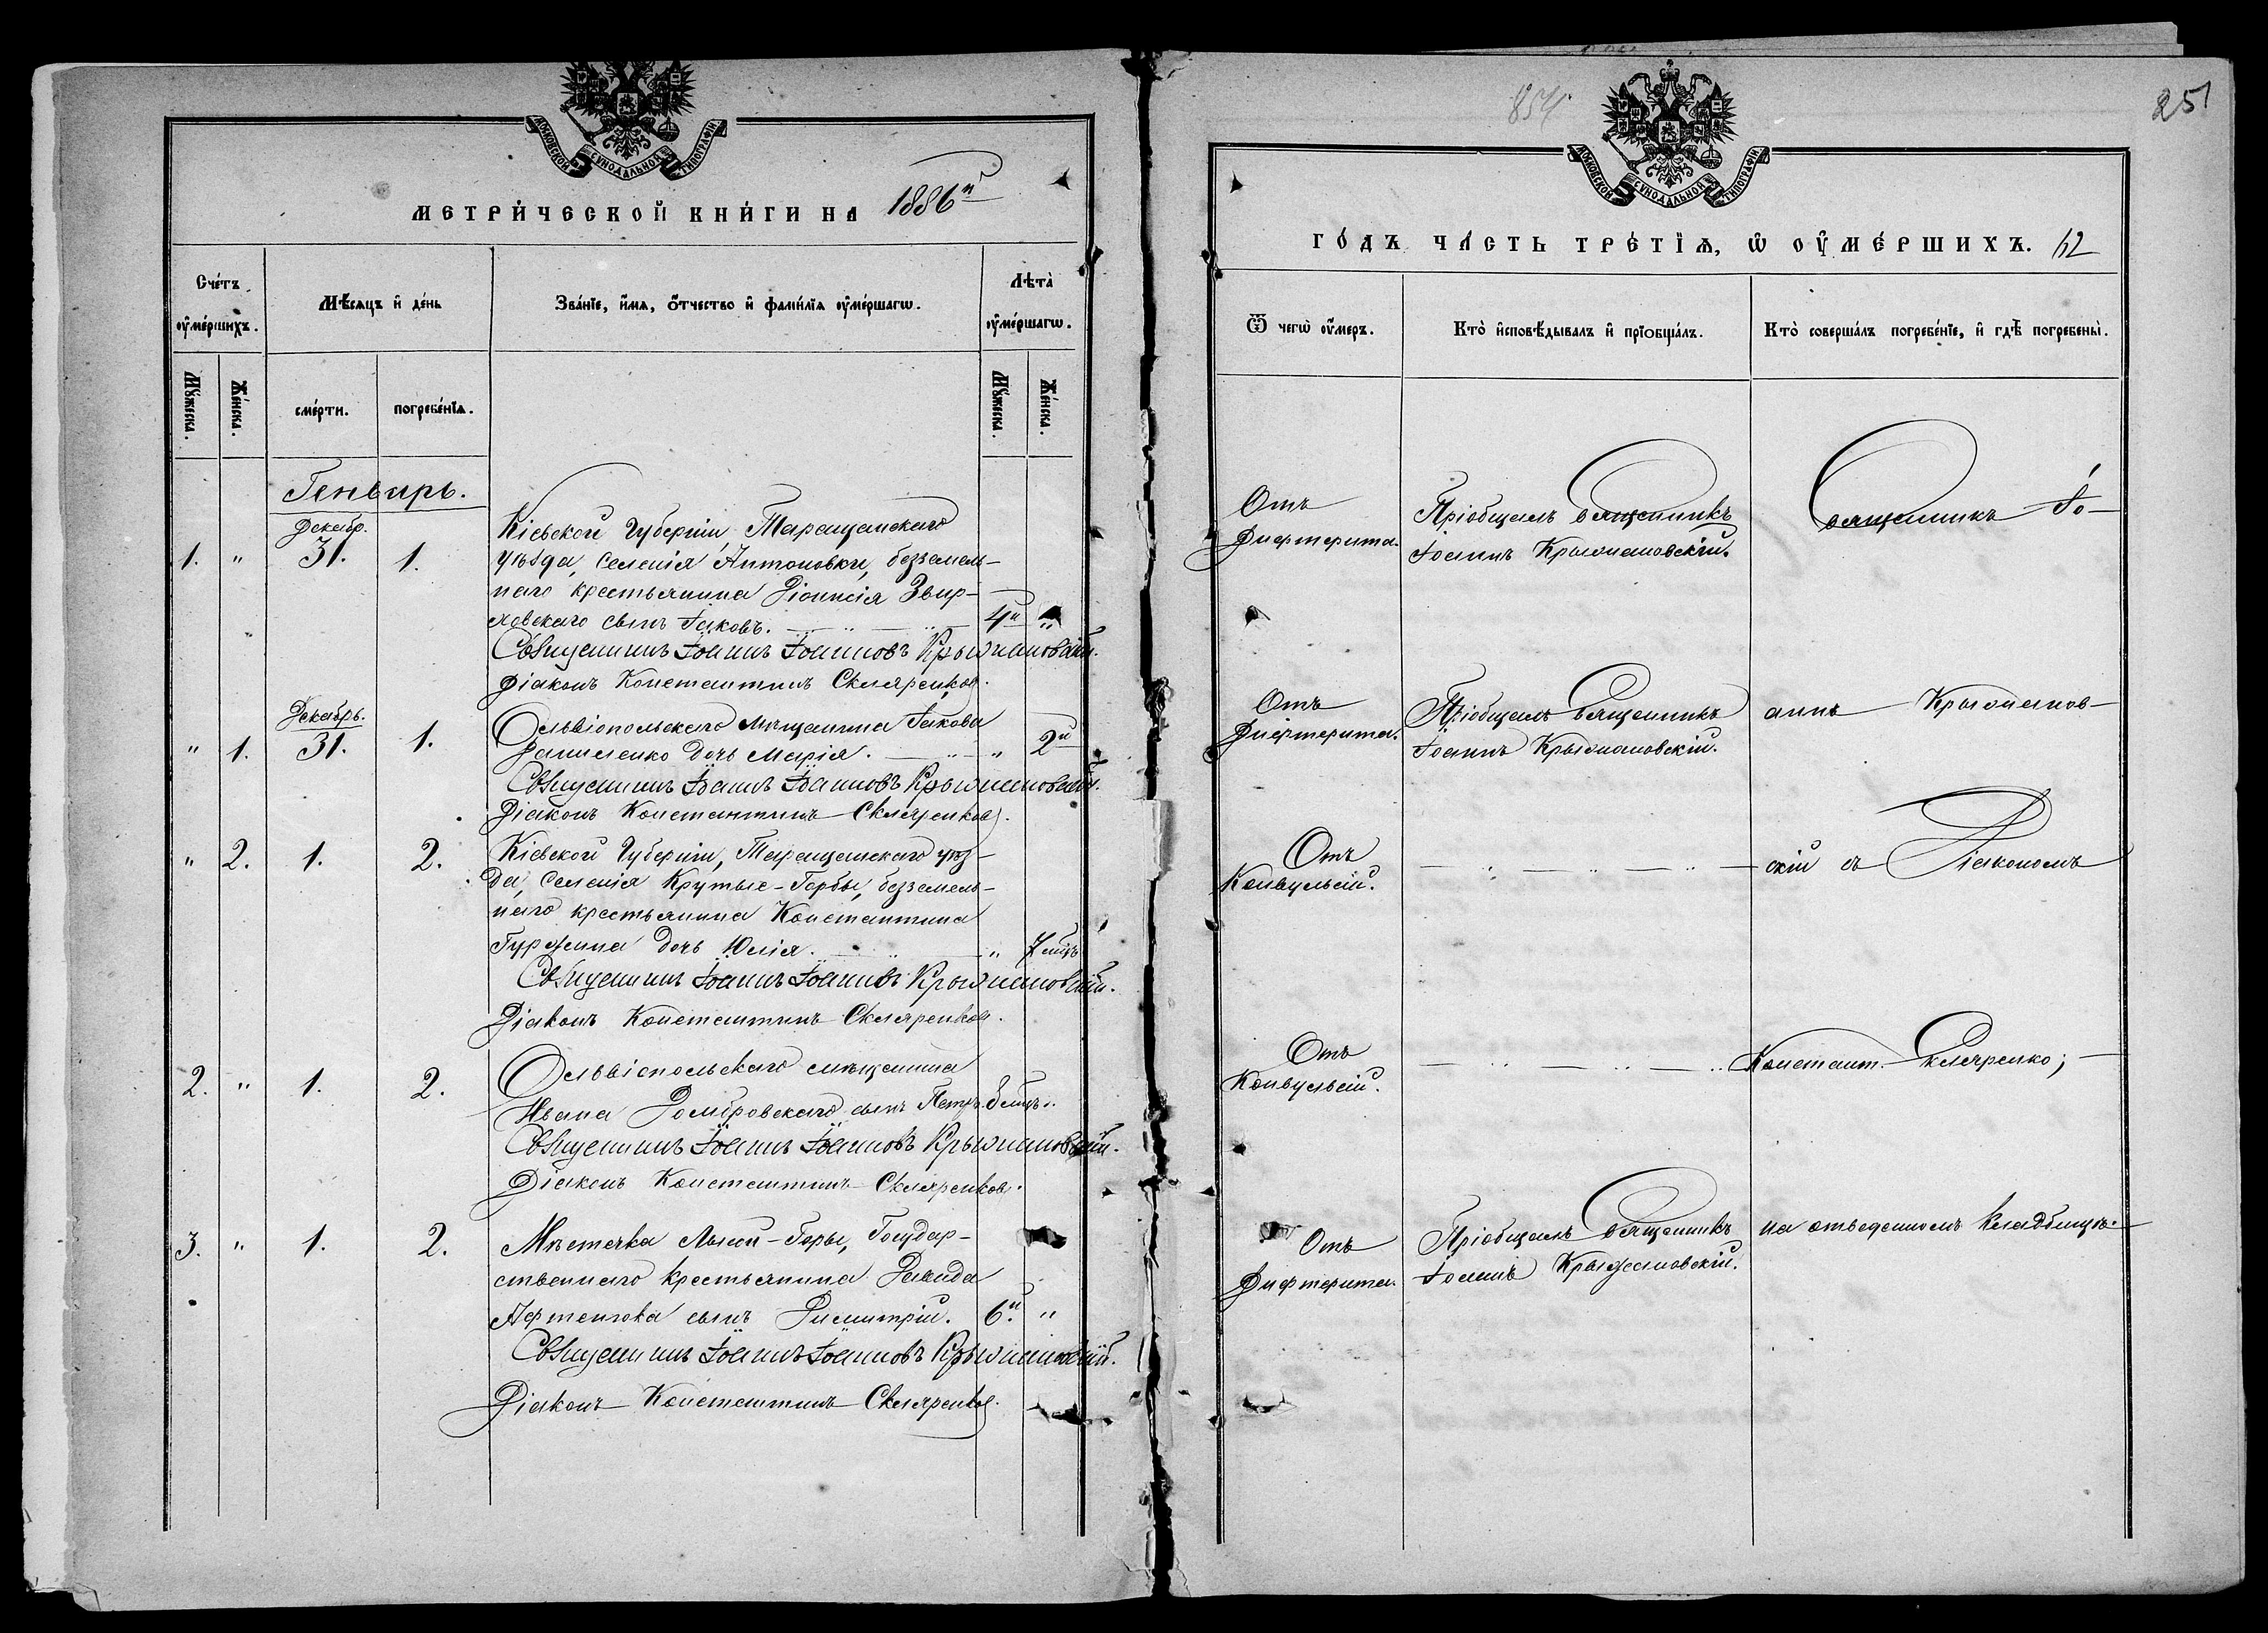 МОСКОВСКОЙ СѴНОДАЛЬНОЙ ТИПОГРАФІИ
МЕТРИ́ЧЕСКОЙ КНИ́ГИ НА 1886й
Сче́тъ ᲂу҆ме́ршихъ.
Мѣ́сяцъ и҆ де́нь
Зва́нїе, и҆́мѧ, ѻ҆́тчество и҆ фами́лїѧ ᲂу҆ме́ршагѡ.
Лѣта̀ ᲂу҆ме́ршагѡ.
Мꙋ́жеска.
Же́нска.
сме́рти.
погребе́нїѧ.
Мꙋ́жеска.
Же́нска.
Генварь.
Декабр.
1. " 31. 1.
Кіевской Губерніи, Таращанскаго
уѣзда, селенія Антоновки, безземель-
наго крестьянина Діонисія Звир-
ховскаго сынъ Іаковъ. 4й "
Священникъ Іоаннъ Іоанновъ Крыжановскій.
Діаконъ Константинъ Скляренков.
Декабрь.
" 1. 31. 1.
Ольвіопольскаго мѣщанина Іакова
Даниленко дочь Марія. " 2й
Священникъ Іоаннъ Іоанновъ Крыжановскій.
Діаконъ Константинъ Скляренков.
" 2. 1. 2.
Кіевской Губерніи, Таращанскаго уѣз-
да, селенія Крутые-Горбы, безземель-
наго крестьянина Константина
Гуржина дочь Юлія. " 7 мѣцъ
Священникъ Іоаннъ Іоанновъ Крыжановскій.
Діаконъ Константинъ Скляренков.
2. " 1. 2.
Ольвіопольскаго мѣщанина
Ивана Домбровскаго сынъ Петръ. 8 мѣцъ "
Священникъ Іоаннъ Іоанновъ Крыжановскій.
Діаконъ Константинъ Скляренков.
3. " 1. 2.
Мѣстечка Лысой-Горы, Государ-
ственнаго крестьянина Давида
сынъ Димитрій. 6й "
Священникъ Іоаннъ Іоанновъ Крыжановскій.
Діаконъ Константинъ Скляренков.
854
251
МОСКОВСКОЙ СѴНОДАЛЬНОЙ ТИПОГРАФІИ
ГО́ДЪ ЧА́СТЬ ТРЕ́ТЇѦ, Ѡ҆ ОУ҆МЕ́РШИХЪ. 42
Ѿ чегѡ̀ ᲂу҆́меръ.
Кто̀ и҆сповѣ́дывалъ и҆ прїѡбща́лъ.
Кто̀ соверша́лъ погребе́нїе, и҆ гдѣ̀ погребены̀.
Отъ
Дифтерита.
Пріобщалъ Священникъ
Іоаннъ Крыжановскій.
Священникъ Іо-
Отъ
Дифтерита.
Пріобщалъ Священникъ
Іоаннъ Крыжановскій.
аннъ Крыжанов-
Отъ
Конвульсій.
скій съ Діакономъ
Отъ
Конвульсій.
Констант. Скляренко;
Отъ
Дифтерита.
Пріобщалъ Священникъ
Іоаннъ Крыжановскій.
на отведенномъ кладбищѣ.